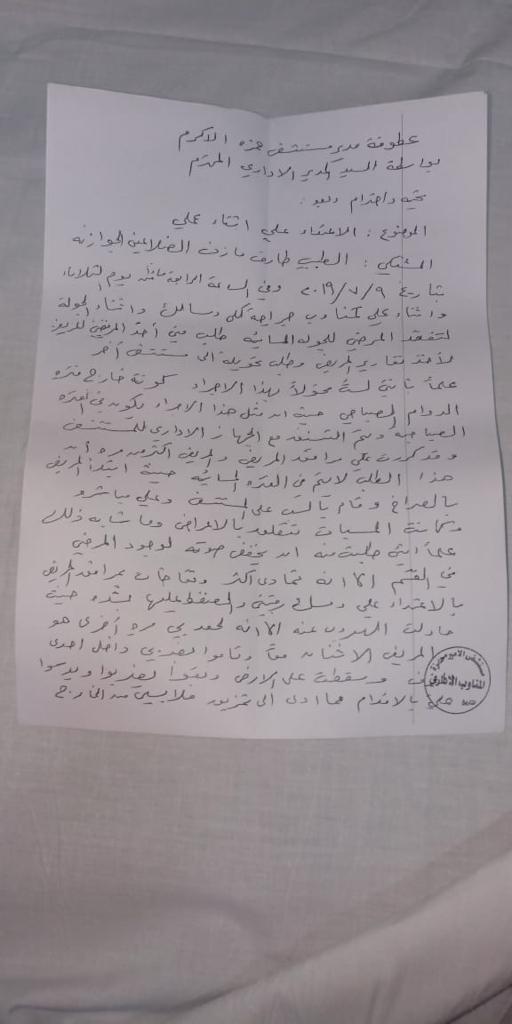 عطوفة مدير مستشفى حمزه الاكرم
بواسطة السيد المدير الاداري المحترم
تحيه واحترام وبعد :
الموضوع : الاعتداء علي اثناء عملي
المشتكي : الطبيب طارق مازن الضلاعين الجوازنه
بتاريخ ٢٠١٩/٧/٩ وفي الساعة الرابعة يوم الثلاثاء
واثناء علي كمناوب جراحة كلى ومسالك واثناء الجولة
لتفقد المرضى للجوله المسائيه طلب مني أحد المرضى
لأخذ تقارير المريض وطلب تحويله الى مستشفى أخر
علماً بانني لست مخولاً بهذا الاجراء كونه خارج فتره
الدوام الصباحي حيث ان مثل هذا الاجراء يكون في الفتره
الصباحيه ويتم التنسيق مع الجهاز الاداري للمستشفى
وقد كررت على مرافقد المريض والمريض اكثر من مره أن
هذا الطلب لا يتم في الفتره المسائيه حيث ابتدأ المريض
بالصراخ وقام بالسب على المستشفى وعلي مباشره
وكانت المسبات تتعلق بالاعراض وما شابه ذلك
علماً انني طلبت منه ان يخفض صوته لوجود المرضى
في القسم الا انه تمادى اكثر وتفاجأت بمرافق المريض
بالاعتداء علي ومسك رقبتي والضغط عليها بشده حيث
حاولت الهروب عنه الا انه لحق بي مره أخرى هو
المريض الاثنان معاً وقاموا بضربي داخل احدى
وسقطت على الارض وبقوا يضربوا ويدسوا
علي بالاقدام مما ادى الى تمزيق ملابسي من الخارج
مستشفى الامير حمزة
المناوب الاداري